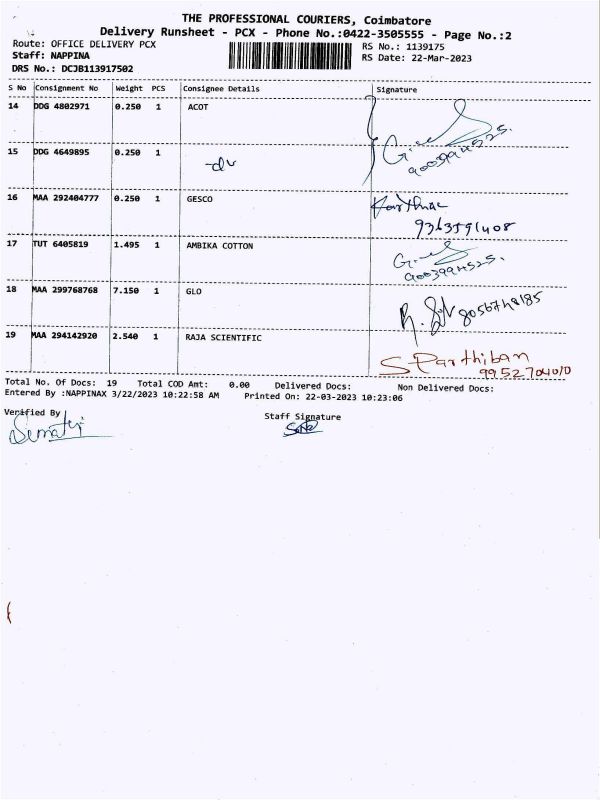 THE PROFESSIONAL COURIERS, Coimbatore
Delivery Runsheet - PCX - Phone No.:0422-3505555 - Page No.:2
Route: OFFICE DELIVERY PCX
RS No.: 1139175
Staff: NAPPINA
RS Date: 22-Mar-2023
DRS No.: DCJB113917502
S No Consignment No Weight PCS Consignee Details Signature
14 DDG 4802971 0.250 1 ACOT
9003994525.
15 DDG 4649895 0.250 1
16 MAA 292404777 0.250 1 GESCO
9363591408
17 TUT 6405819 1.495 1 AMBIKA COTTON
9003994525.
18 MAA 299768768 7.150 1 GLO
19 MAA 294142920 2.540 1 RAJA SCIENTIFIC
S Parthiban
9952704010
Total No. Of Docs: 19 Total COD Amt: 0.00 Delivered Docs: Non Delivered Docs:
Entered By :NAPPINAX 3/22/2023 10:22:58 AM Printed On: 22-03-2023 10:23:06
Verified By
Staff Signature